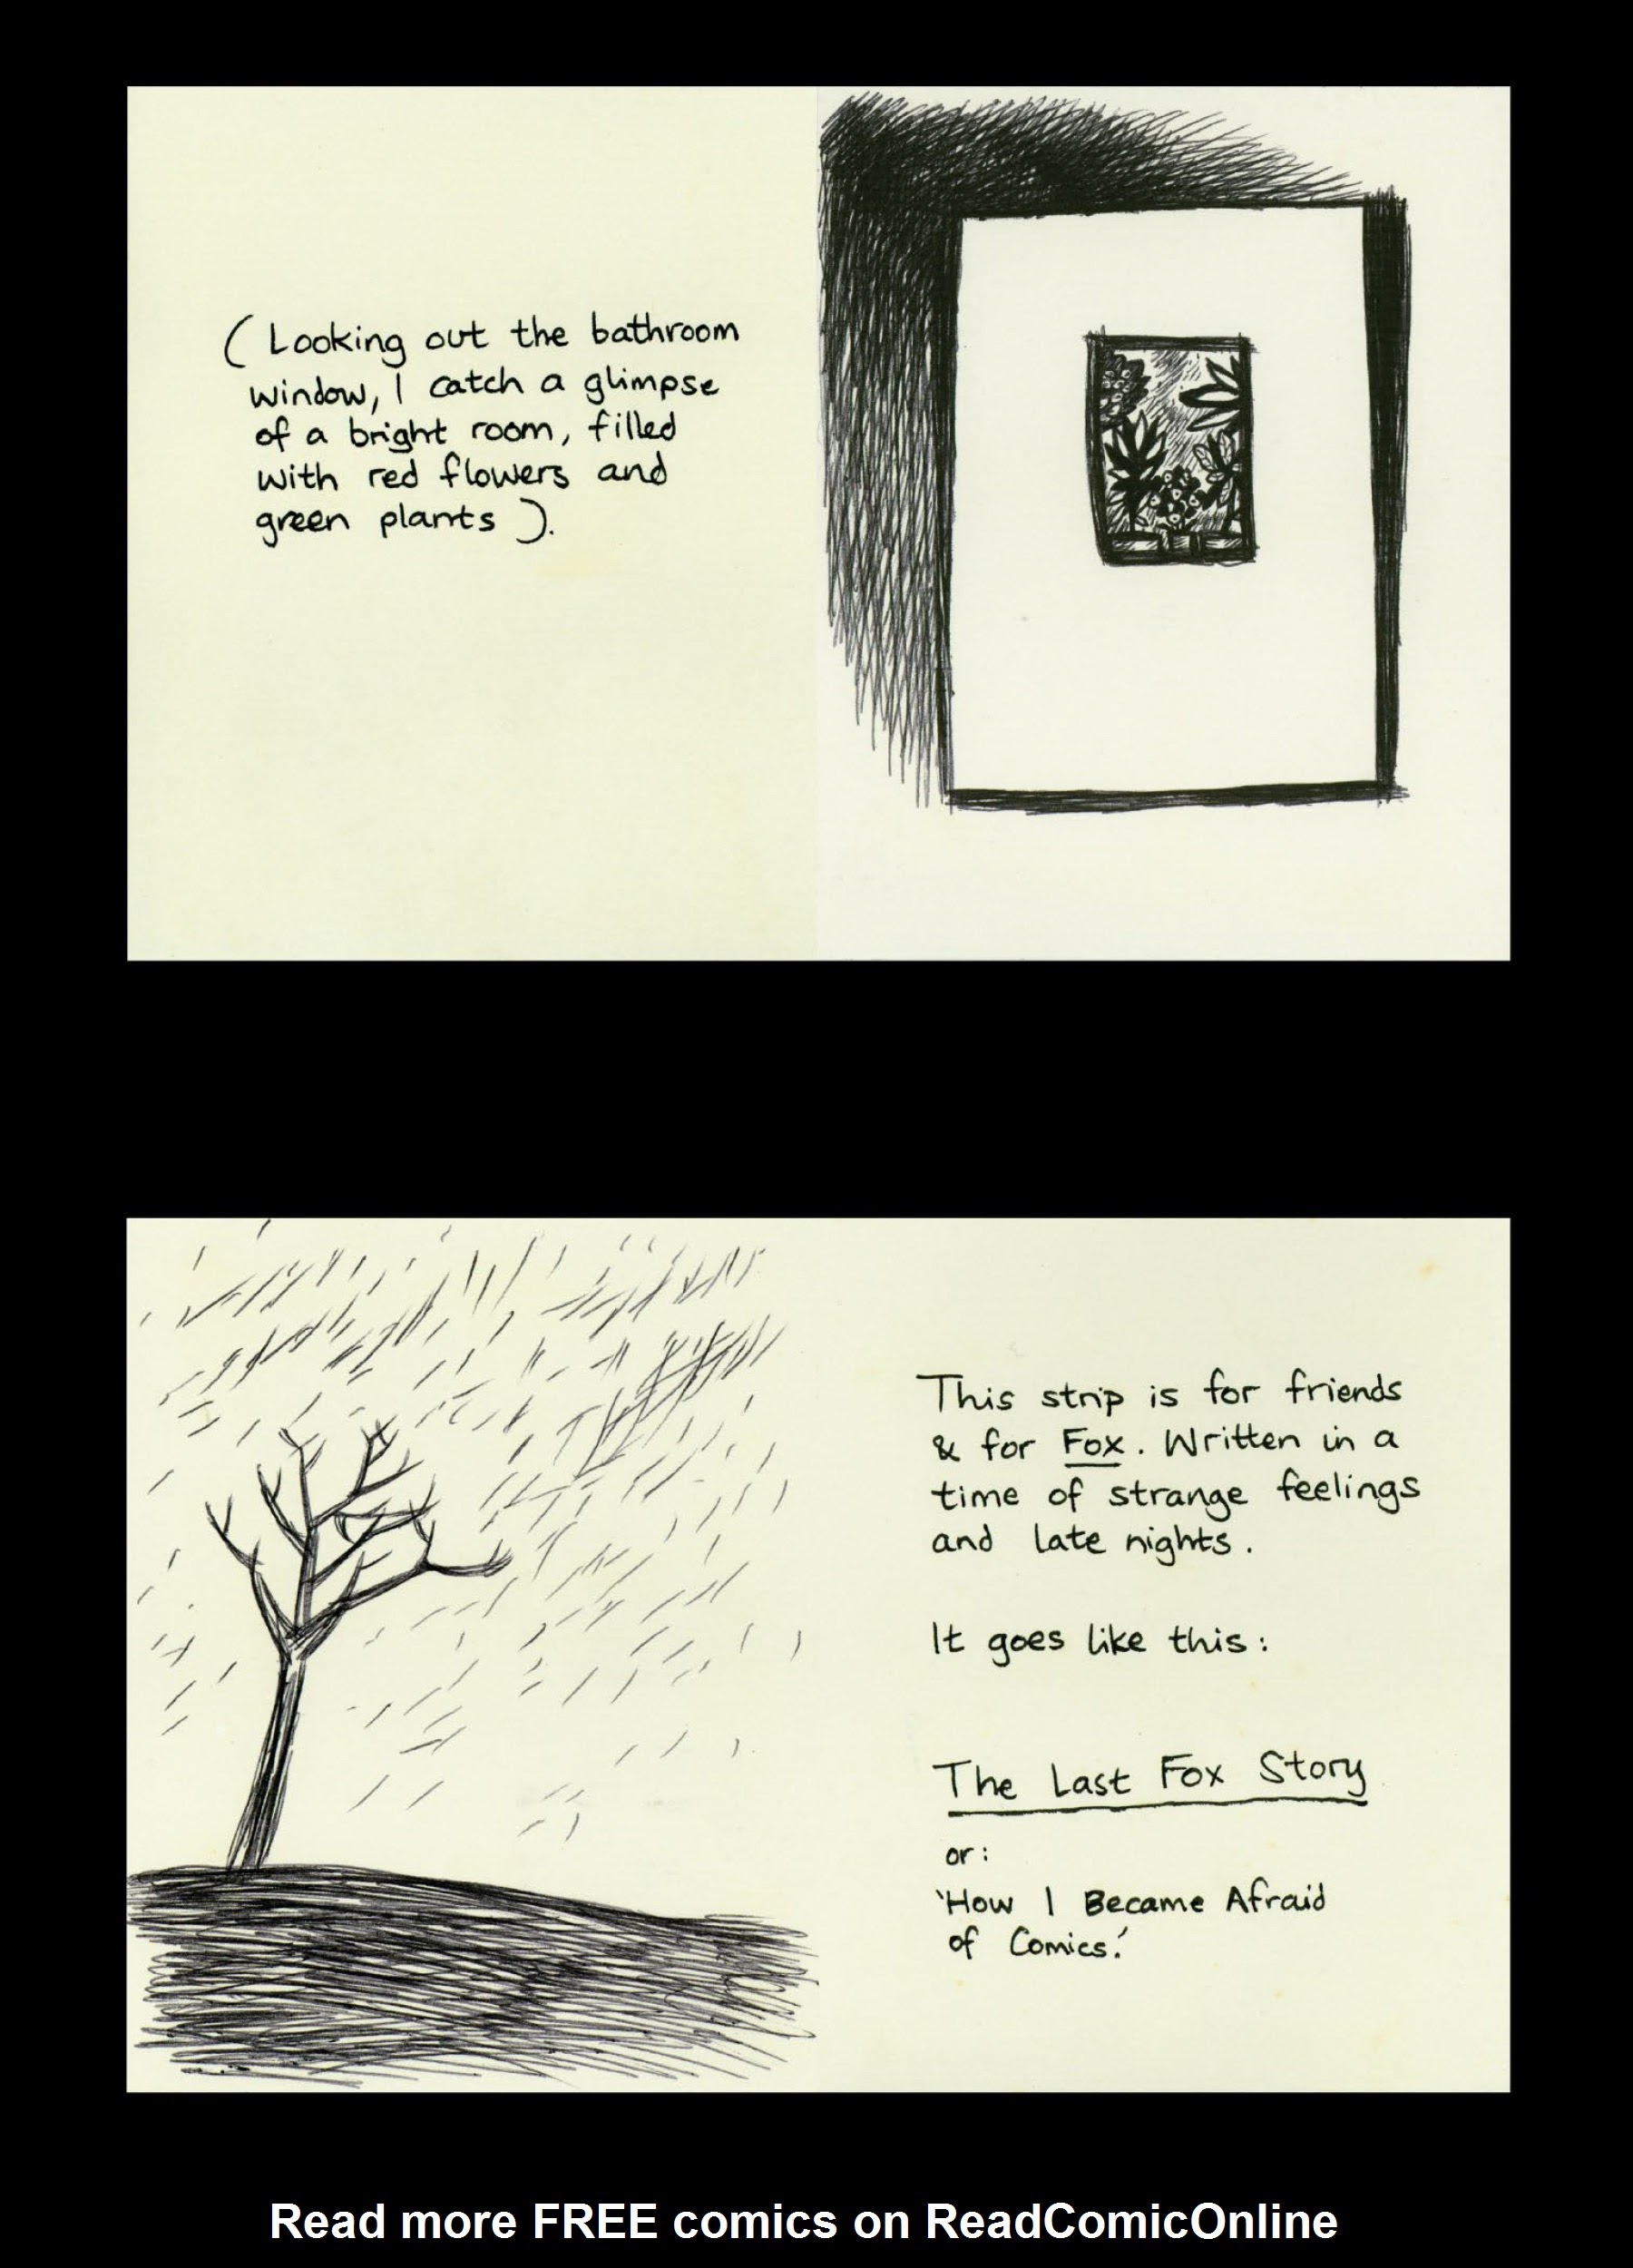 ( Looking out the bathroom
window, I catch a glimpse
of a bright room, filled
with red flowers and
green plants ).
This strip is for friends
& for Fox. Written in a
time of strange feelings
and late nights.
It goes like this:
The Last Fox Story
or:
'How I Became Afraid
of Comics.'
Read more FREE comics on ReadComicOnline